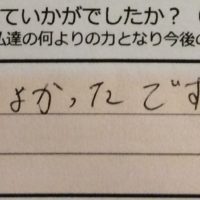 ていかがでしたか？
私達の何よりの力となり今後の
よかったです